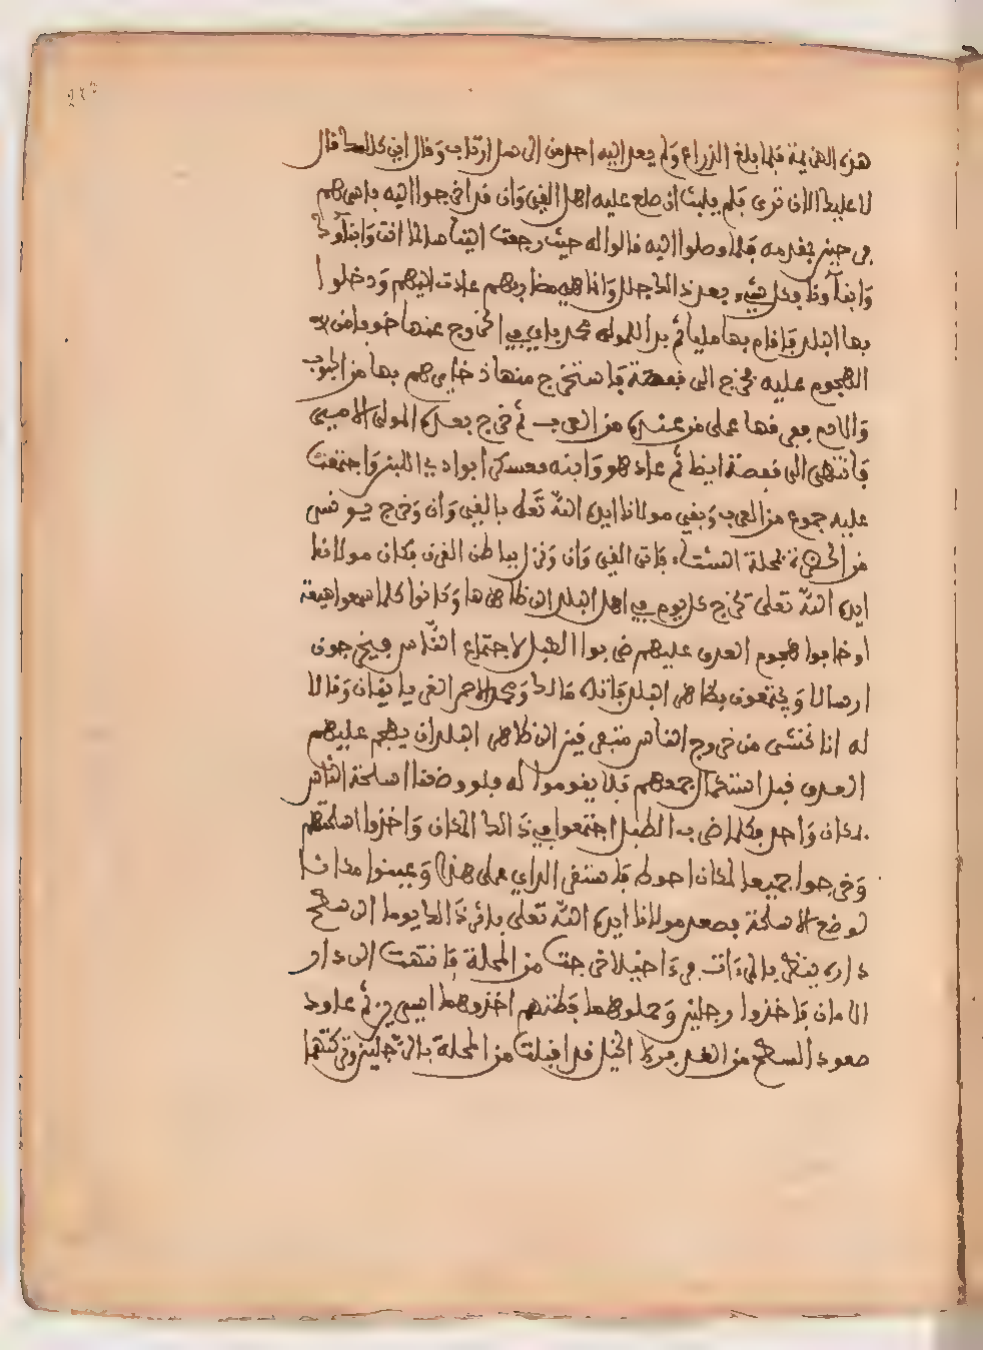 هذه الهزيمة فلما بلغ الزراع ولم يعد اليه احد من الى هل ارتاب وقال اين قال
لا عليك الان ترى فلم يلبث ان طلع عليه اهل القيروان قد اخرجوا اليه باسرهم
في حين بمقدمه فلما وصلوا اليه قالوا له حيث رجعت الينا سالما انت وابناؤك
وابناؤنا فكل شيء بعد ذلك جلل وانما هي عادت اليهم ودخلوا
بها البلد فاقام بها مليا ثم بدا للمولى محمد باي في الخروج عنها خوفا من
الهجوم عليه فخرج الى فاستخرج منها ذخايرهم بها من الحبوب
والادم ففرقها على من عنده من العرب ثم خرج بعده المولى الامير
فانتهى الى ايضا ثم عاد هو وابنه فعسكرا بوادي اللبن واجتمعت
عليه جموع من العرب وبقي مولانا ايده الله تعلى بالقيروان وخرج يونس
من الحضرة بمحلة الشتاء فاتى القيروان ونزل بباطن القرن فكان مولانا
ايده الله تعلى يخرج كل يوم في اهل البلد الى ظاهرها وكانوا كلما سمعوا هيعة
او خافوا هجوم العدو عليهم ضربوا الطبل لاجتماع الناس فيخرجون
ارسالا ويجتمعون بظاهر البلد فاتاه وقالا
له انا نخشى من خروج الناس متفرقين الى ظاهر البلد ان يهجم عليهم
العدو قبل استكمال جمعهم فلا يقوموا له فلو وضعنا اسلحة الناس
بمكان واحد فكلما ضرب الطبل اجتمعوا في ذالك المكان واخذوا اسلحتهم
وخرجوا جميعا لكان احوط فاستقر الراي على هذا وعينوا مكانا
لوضع الاسلحة فصعد مولانا ايده الله تعلى باثر ذالك يوما الى سطح
داره ينظر بالمرءات فرءا خيلا خرجت من المحلة فانتهت الى دار
الامان فاخذوا رجلين وحملوهما فظنهم اخذوهما اسيرين ثم عاود
صعود السطح من الغد فراى الخيل قد اقبلت من المحلة بالرجلين وتركتهما